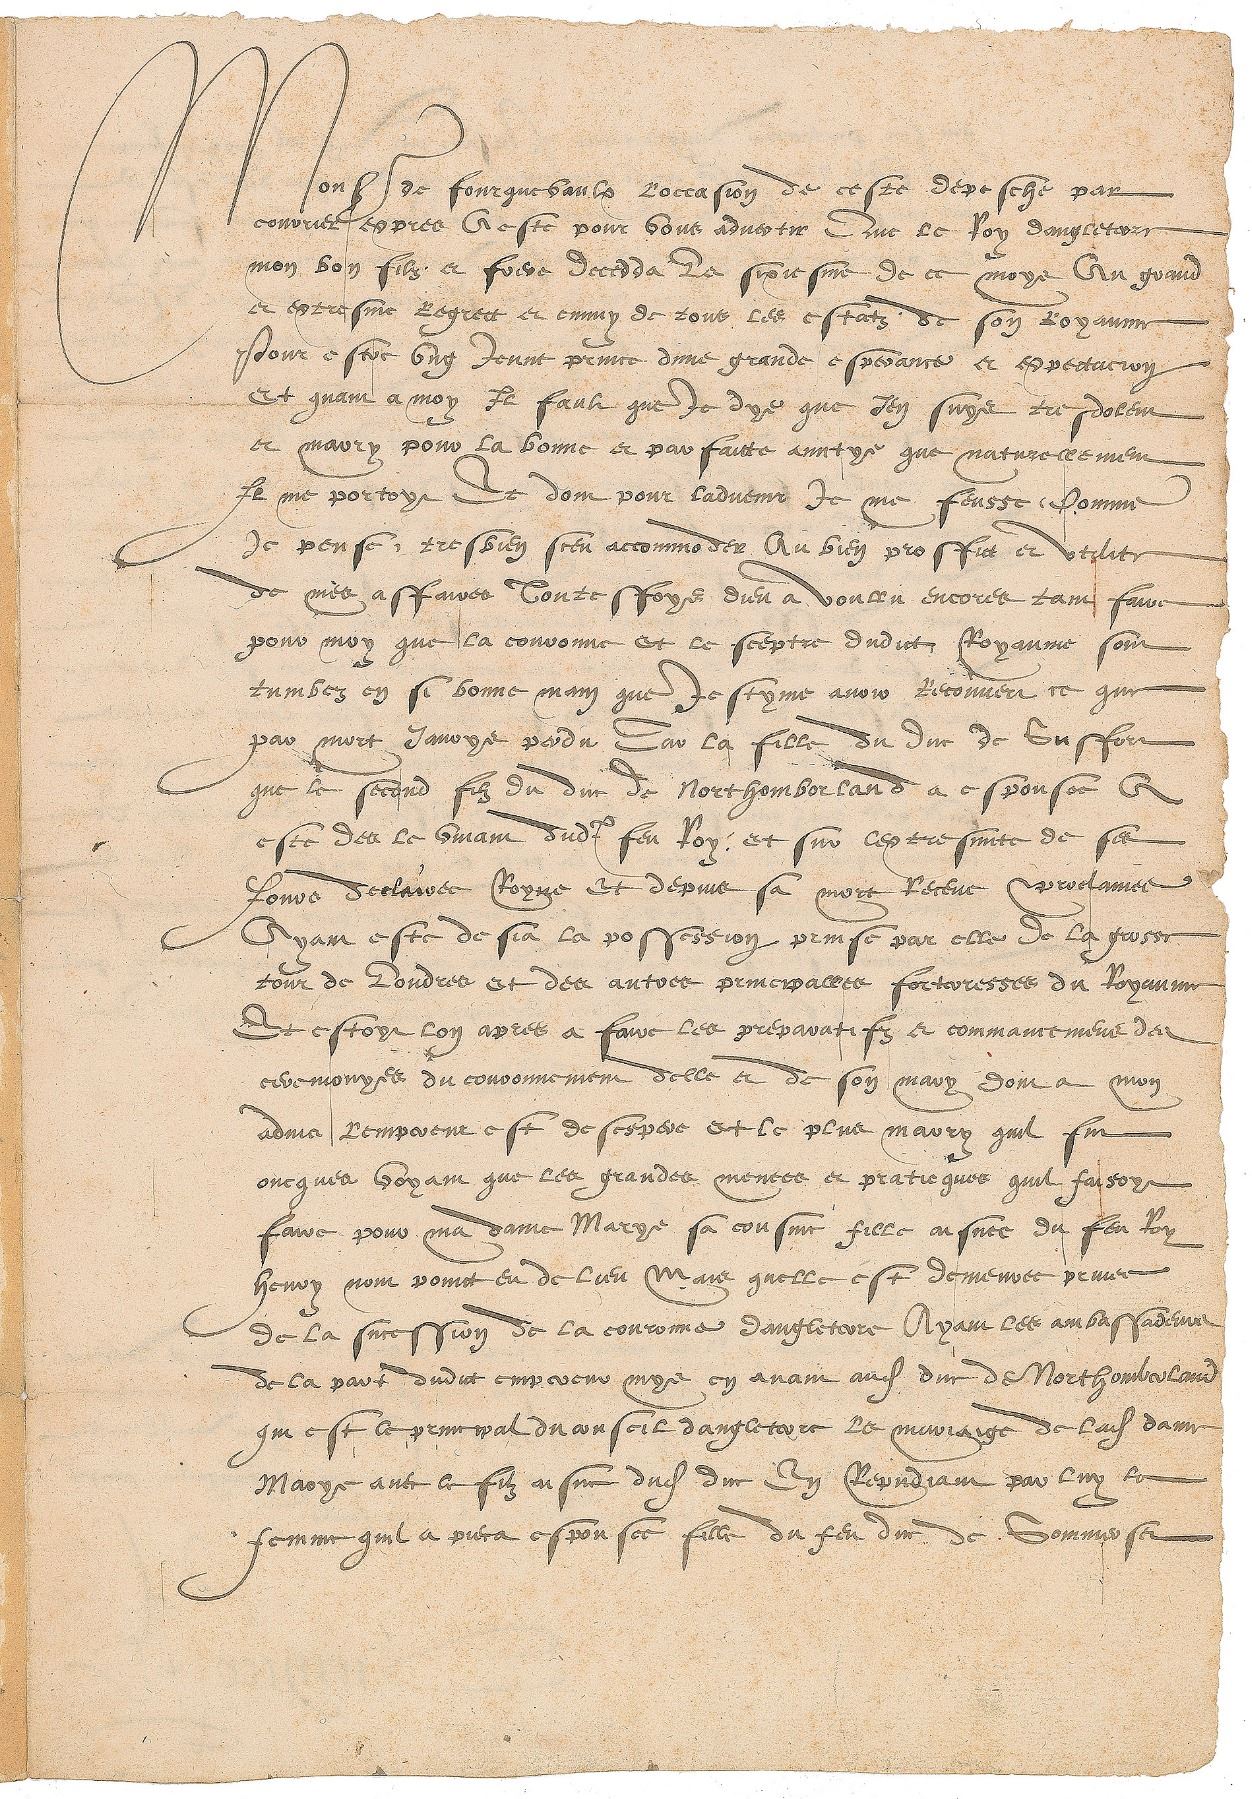 Monsr de fourquevaulx l'occasion de ceste depesche par
courrier expres A este pour vous advertir Que le Roy dangleterre
mon bon filz et frere decedda Le sixiesme de ce moys Au grand
et extresme Regrect et ennuy de tous les estatz de son Royaume
Pour estre ung Jeune prince dune grande esperance et expectacion
Et quant a moy Il fault que Je dye que Jen suys tresdolent
et marry pour la bonne et parfaicte amytye que naturellement
Il me portoyt Et dont pour ladvenir Je me feusse Comme
Je pense tresbien sceu accommoder Au bien proffict et utilite
de mes affaires Toutesffoys dieu a voullu encores tant faire
pour moy que la couronne Et le sceptre dudict Royaume sont
tumbez en si bonne main que Jestyme avoir Recouvert ce que
par mort Javoys perdu Car la fille du duc de Suffort
que le second filz du duc de Northomborland a espousee A
este des le vivant dudt feu Roy Et sur lextresmite de ses
Jours declairee Royne Et depuis sa mort Receue proclamee
Ayant este desia la possession prinse par elle de la grosse
tour de Londres Et des autres principalles forteresses du Royaume
Et estoyt lon apres a faire les preparatifz et commancement des
ceremonyes du couronnement delle et de son mary Dont a mon
advis Lempereur est desespere Et le plus marry quil fut
oncques voyant que les grandes menees et praticques quil faisoyt
faire pour ma dame Marye sa cousine fille aisnee du feu Roy
henry nont poinct eu de lieu Mais quelle est demeuree privee
de la succession de la couronne dangleterre Ayant les ambassadeurs
de la part dudict empereur mys en avant aud duc de Northomberland
qui est le principal du conseil dangleterre le mariaige de lad dame
Marye avec le filz aisne dud duc En Repudiant par luy la
femme quil a pieca espousee fille du feu duc de Sommerset